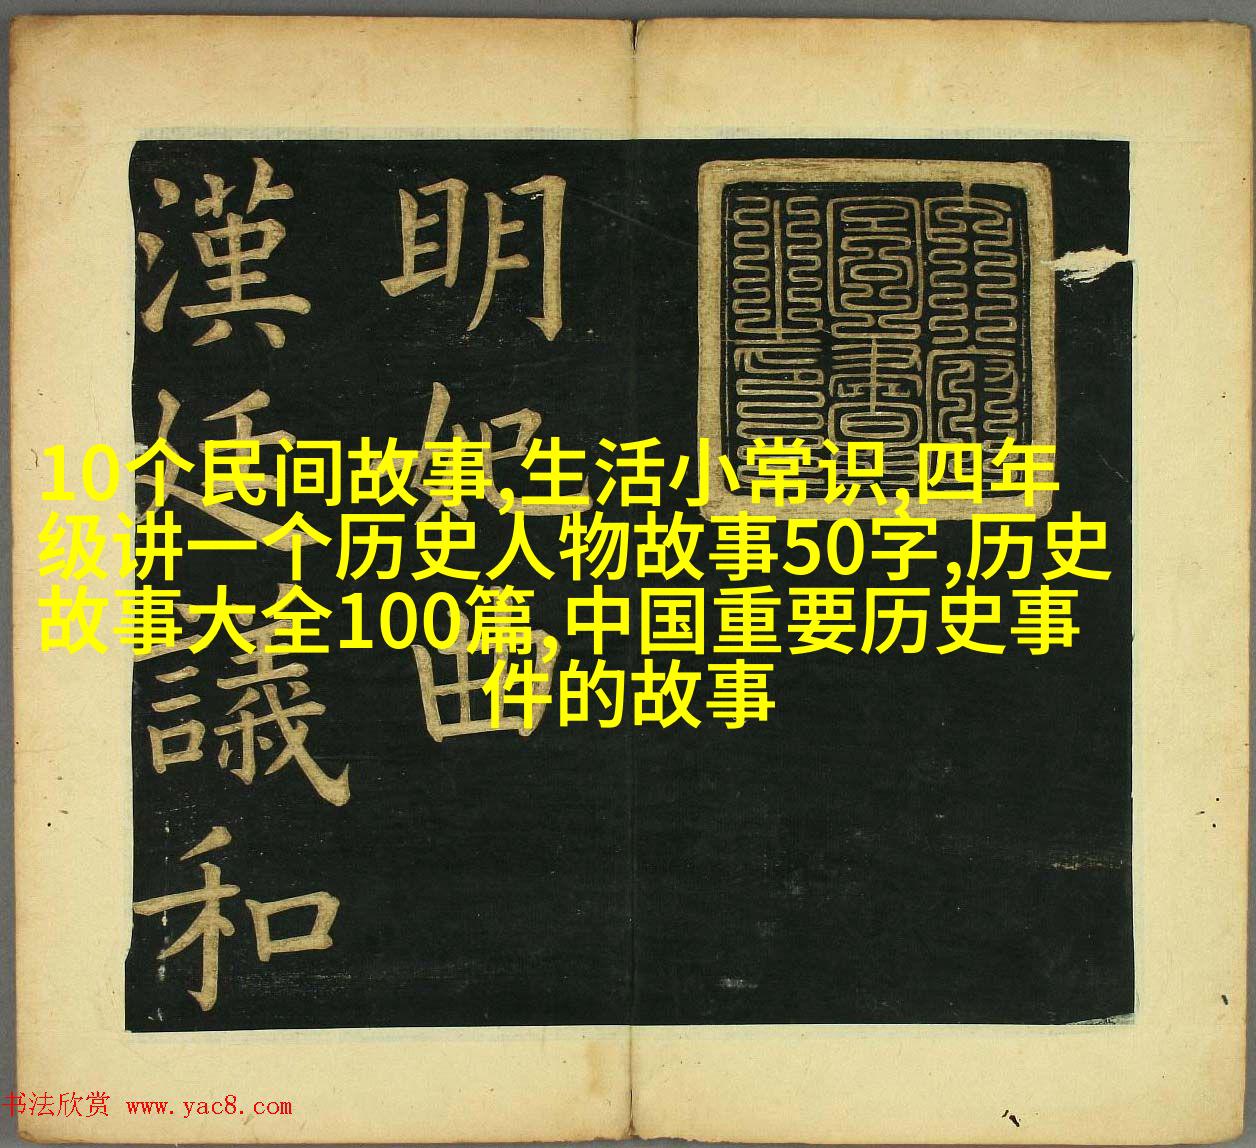 明妃曲
漢廷議和
10个民间故事,生活小常识,四年
级讲一个历史人物故事50字,历史
故事大全100篇,中国重要历史事
件的故事
书法欣赏 www.yac8.com